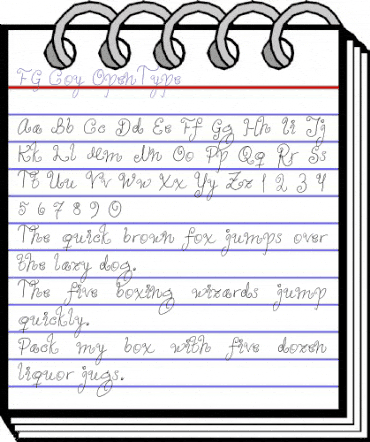 FG Coy OpenType
Aa Bb Cc Dd Ee Ff Gg Hh Ii Jj
Kk Ll Mm Nn Oo Pp Qq Rr Ss
Tt Uu Vv Ww Xx Yy Zz 1 2 3 4
5 6 7 8 9 0
The quick brown fox jumps over
the lazy dog.
The five boxing wizards jump
quickly.
Pack my box with five dozen
liquor jugs.